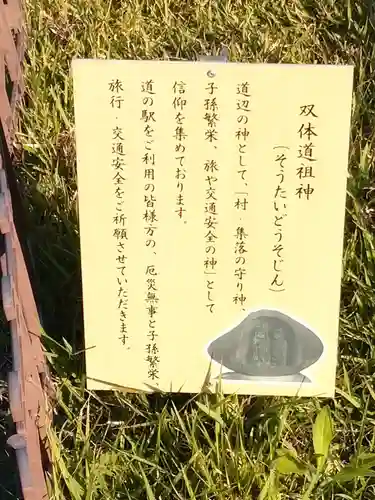 双体道祖神
(そうたいどうそじん)
道辺の神として、「村・集落の守り神、
子孫繁栄、旅や交通安全の神」として
信仰を集めております。
道の駅をご利用の皆様方の、厄災無事と子孫繁栄、
旅行・交通安全をご祈願させていただきます。